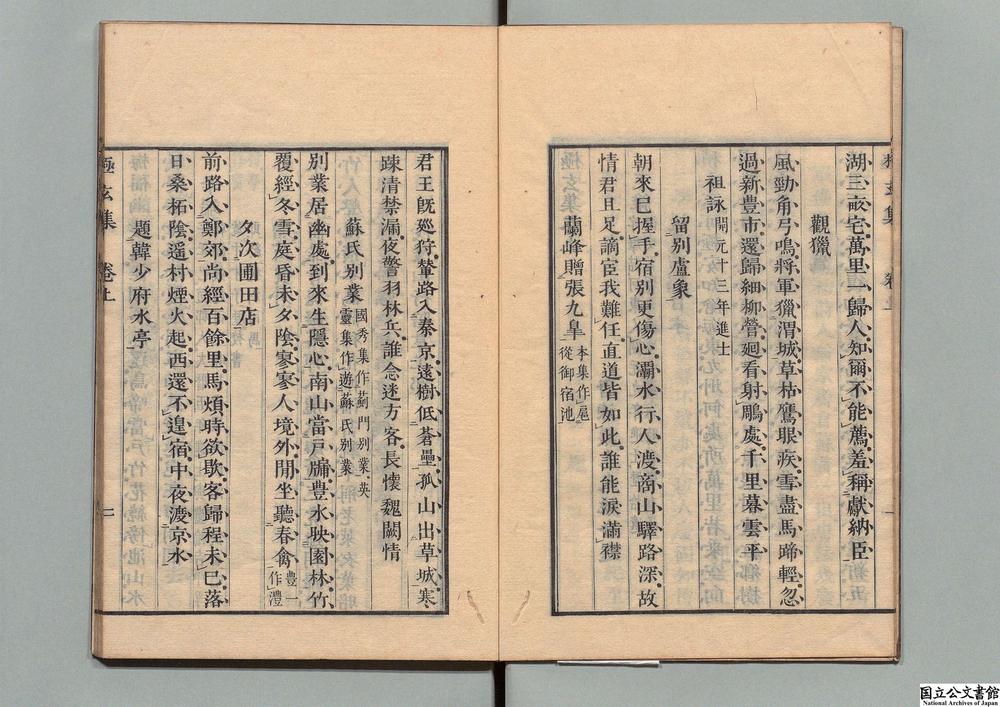 湖三畝宅萬里一歸人知爾不能薦羞稱獻納臣
觀獵
風勁角弓鳴將軍獵渭城草枯鷹眼疾雪盡馬蹄輕忽
過新豊市還歸細柳營廻看射鵰處千里暮雲平
祖詠開元十三年進士
留别盧象
朝來巳握手宿别更傷心灞水行人渡商山驛路深故
情君且足謫宦我難任直道皆如此誰能淚滿襟
蘭峰贈張九皐本集作扈從御宿池
君王旣廵狩輦路入秦京遠樹低蒼壘孤山出草城寒
踈清禁漏夜警羽林兵誰念迷方客長懷魏闕情
蘇氏别業國秀集作薊門别業英靈集作遊蘇氏别業
别業居幽處到來生隱心南山當戸牖豊水映園林竹
覆經冬雪庭昏未夕陰寥寥人境外閒坐聽春禽豊一作澧
夕次圃田店
前路入鄭郊尚經百餘里馬煩時欲歇客歸程未巳落
日桑柘陰遥村煙火起西還不遑宿中夜渡京水
題韓少府水亭
極玄集 卷上 二
極玄集
国立公文書館
National Archives of Japan